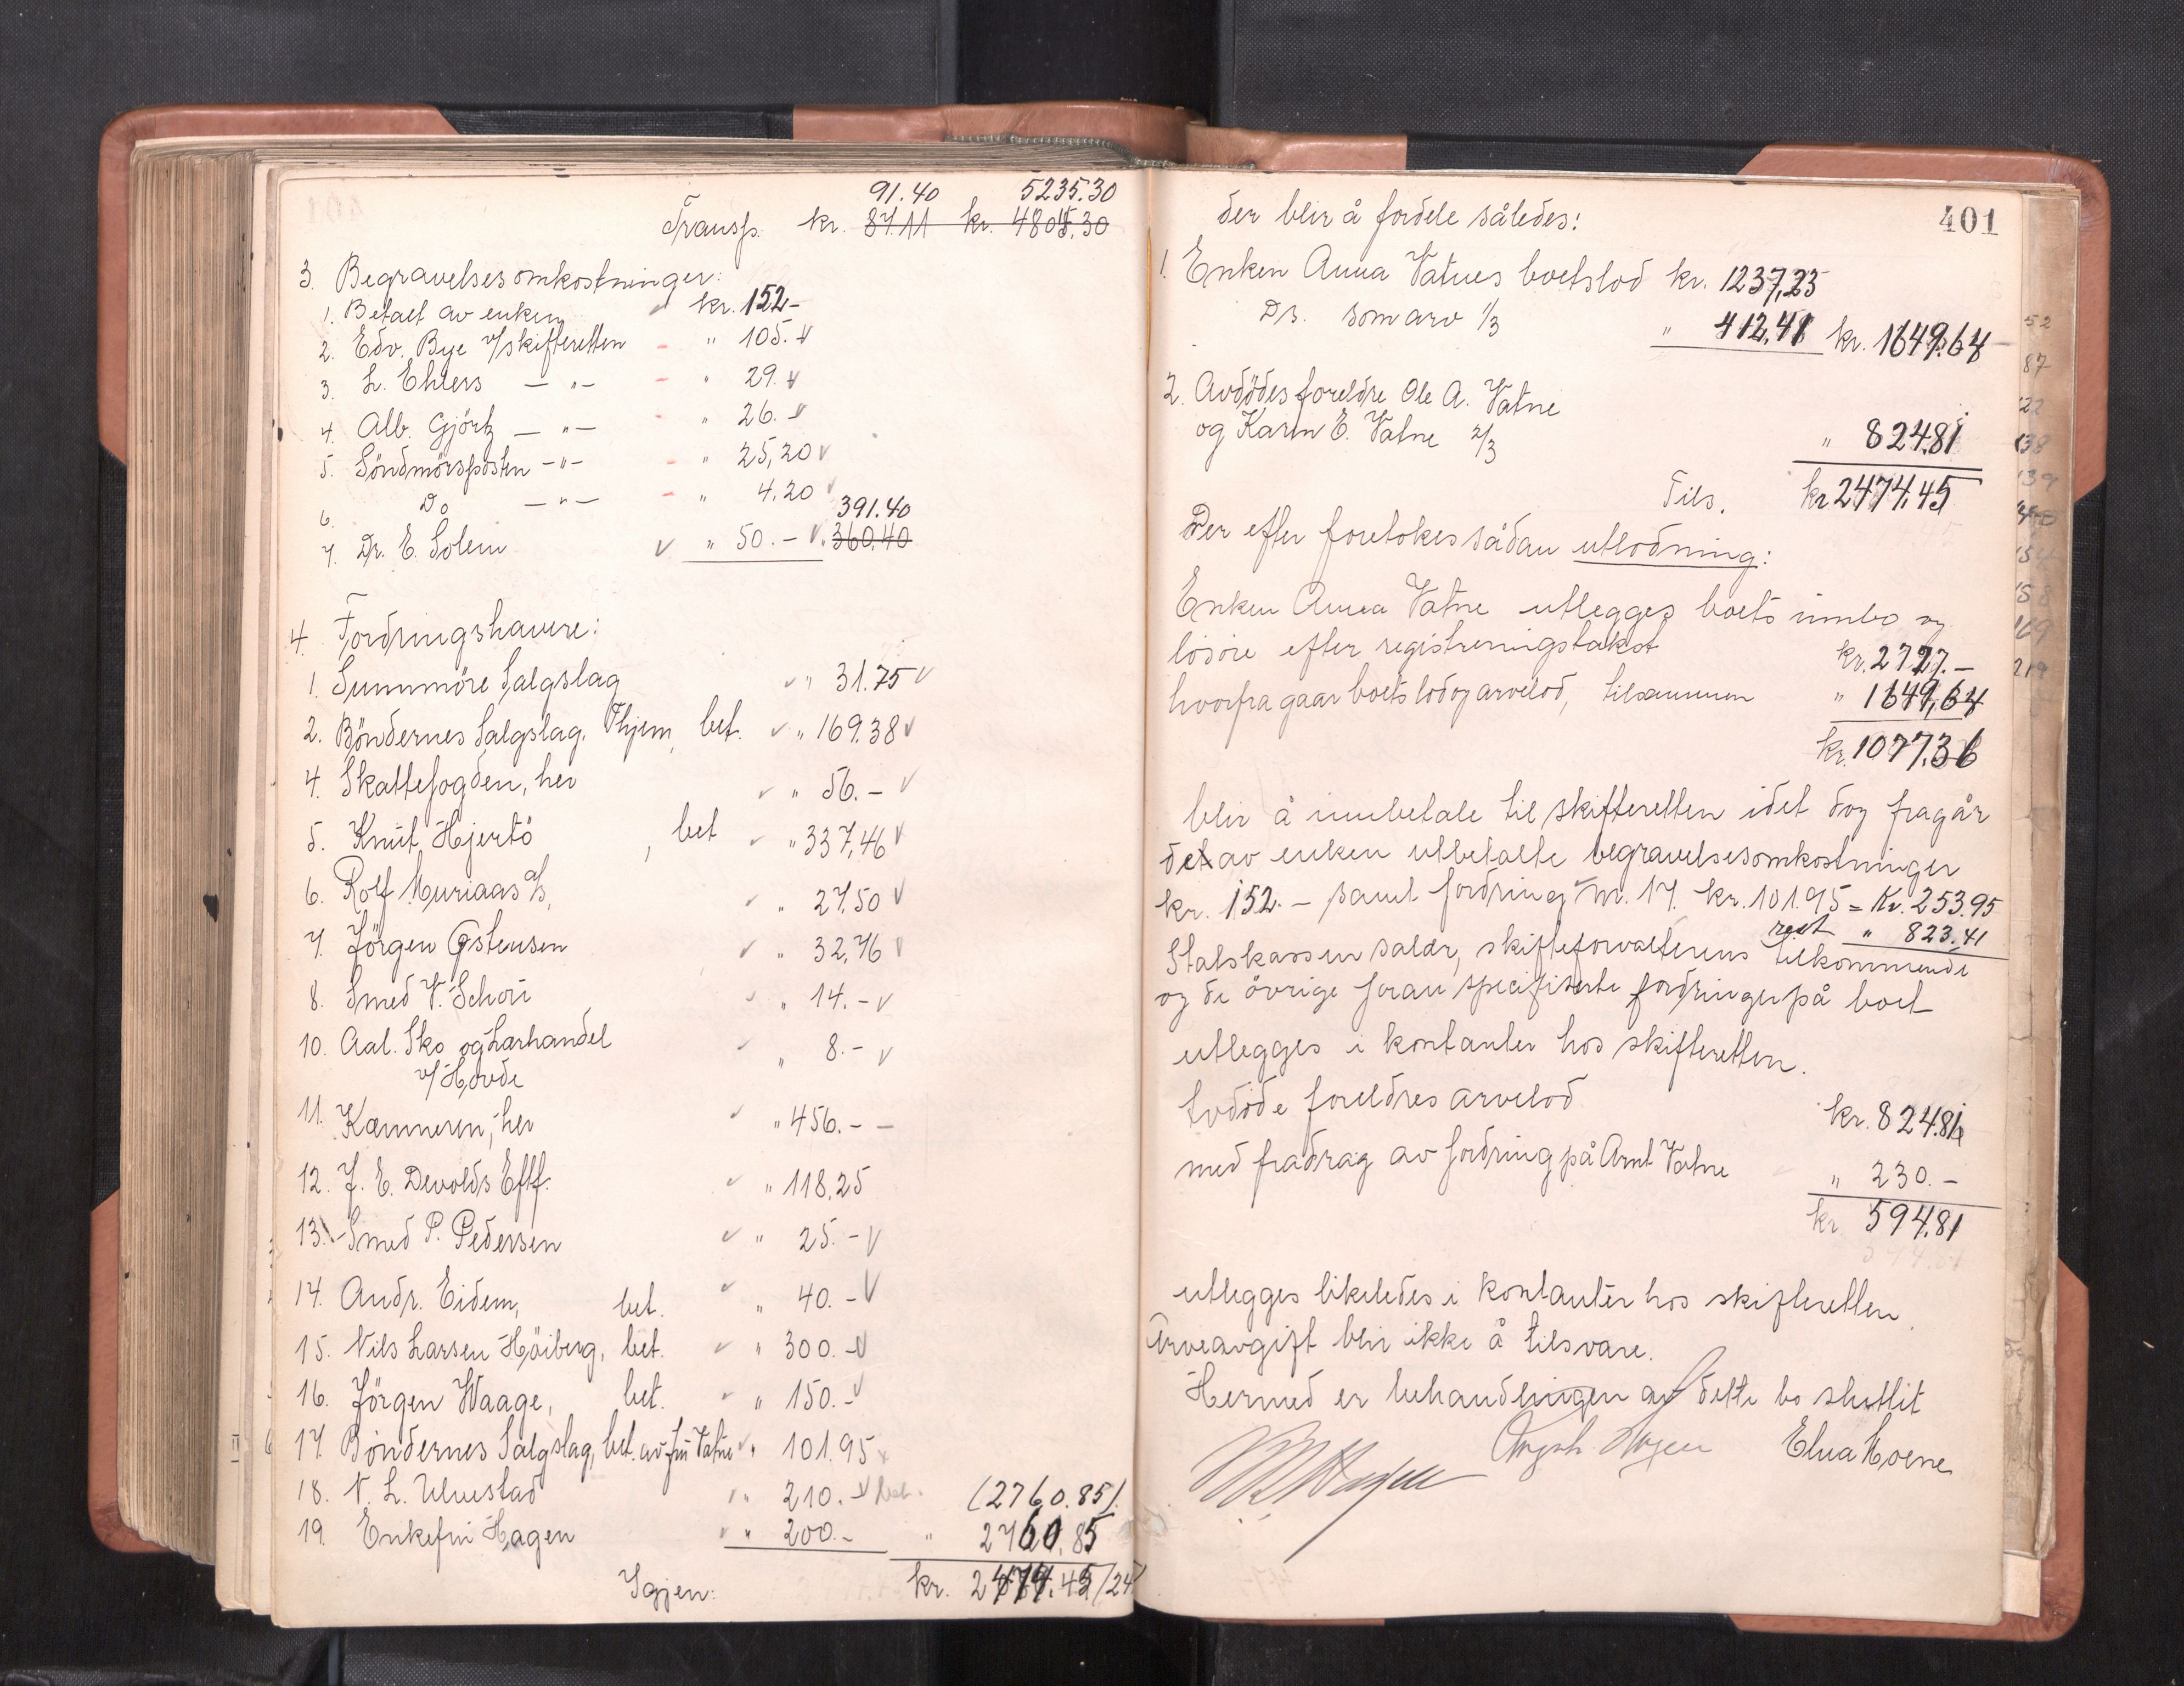 91.40 5235.30
Transp. kr. 87.11 kr. 4805.30
3. Begravelsesomkostninger:
1. Betalt av enken kr. 152-
2. Edv. Bye v/skifteretten - " 105.-
3. L. Ehlers - " - - " 29.-
4. Alb. Gjörtz - " - - " 26.-
5. Söndmörsposten - " - - " 25,20
6. Do - " - - " 4.20
391.40
7. Dr. E. Solem " 50.- 360.40
4. Fordringshavere:
1. Sunnmöre Salgslag " 31.75
2. Böndernes Salgslag, Thjem, bet. " 169.38
4. Skattefogden, her " 56.-
5. Knut Hjertö, bet " 337,46
6. Rolf Muriaas A/S, " 27,50
7. Jörgen Östensen " 32,76
8. Smed V. Schou " 14.-
10. Aal. Sko og Lærhandel " 8.-
v/Hovde
11. Kæmneren, her " 456.-
12. J. E. Devolds Eftf. " 118,25
13. Smed P. Pedersen " 25.-
14. Andr. Eidem, bet. " 40.-
15. Nils Larsen Höiberg, bet. " 300.-
16. Jörgen Waage, bet. " 150.-
17. Böndernes Salgslag, bet. av fru Vatne " 101.95
18. N. L. Ulvestad " 210.- bet. (2760.85)
19. Enkefru Hagen " 200.- " 2760,85
Igjen: kr. 2474.45 /24
401
der blir å fordele således:
1. Enken Anna Vatnes boetslod kr. 1237,23
Ds. som arv 1/3 " 412,41 kr. 1649.64
2. Avdödes foreldre Ole A. Vatne
og Karen E. Vatne 2/3 " 824.81
Tils. kr 2474,45
Der efter foretokes sådan utlodning:
Enken Anna Vatne utlegges boets innbo og
lösöre efter registreringstakst kr. 2727.-
hvorfra gaar boetslod og arvelod, tilsammen " 1649,64
kr. 1077.36
blir å innbetale til skifteretten idet dog fragår
det av enken utbetalte begravelsesomkostninger
kr. 152.- samt fordring nr. 17. kr. 101.95 = Kr. 253.95
rest " 823.41
Statskassen salær, skifteforvalterens tilkommende
og de övrige foran specifiserte fordringer på boet
utlegges i kontanter hos skifteretten.
Avdöde foreldres arvelod kr. 824.81
med fradrag av fordring på Arnt Vatne " 230.-
kr. 594.81
utlegges likeledes i kontanter hos skifteretten.
Arveavgift blir ikke å tilsvare.
Hermed er behandlingen av dette bo sluttit
Elna Moene
52
87
122
138
139
154
158
169
219